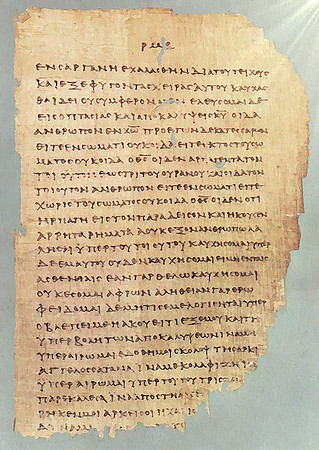 ΕΝϹΑΡΓΑΝΗΕΧΑΛΑϹΘΗΝΔΙΑΤΟΥΤΕΙΧΟΥϹ
ΚΑΙΕΞΕΦΥΓΟΝΤΑϹΧΕΙΡΑϹΑΥΤΟΥΚΑΥΧΑϹ
ΘΑΙΔΕΙΟΥϹΥΜΦΕΡΟΝΜΕΝΕΛΕΥϹΟΜΑΙΔΕ
ΕΙϹΟΠΤΑϹΙΑϹΚΑΙΑΠΟΚΑΛΥΨΕΙϹΚ̅Υ̅ΟΙΔΑ
ΑΝΘΡΩΠΟΝΕΝΧ̅Ρ̅Ω̅ΠΡΟΕΤΩΝΔΕΚΑΤΕϹϹΑΡΩΝ
ΕΙΤΕΕΝϹΩΜΑΤΙΟΥΚΟΙΔΑΕΙΤΕΕΚΤΟϹΤΟΥϹΩ
ΜΑΤΟϹΟΥΚΟΙΔΑΟΘ̅Ϲ̅ΟΙΔΕΝΑΡΠΑΓΕΝΤΑΤΟΝ
ΤΟΙΟΥΤΟΝΕΩϹΤΡΙΤΟΥΟΥΡΑΝΟΥΚΑΙΟΙΔΑΤΟΝ
ΤΟΙΟΥΤΟΝΑΝΘΡΩΠΟΝΕΙΤΕΕΝϹΩΜΑΤΙΕΙΤΕ
ΧΩΡΙϹΤΟΥϹΩΜΑΤΟϹΟΥΚΟΙΔΑΟΘ̅Ϲ̅ΟΙΔΕΝΟΤΙ
ΗΡΠΑΓΗΕΙϹΤΟΝΠΑΡΑΔΕΙϹΟΝΚΑΙΗΚΟΥϹΕΝ
ΑΡΡΗΤΑΡΗΜΑΤΑΑΟΥΚΕΞΟΝΑΝΘΡΩΠΩΛΑ
ΛΗϹΑΙΥΠΕΡΤΟΥΤΟΙΟΥΤΟΥΚΑΥΧΗϹΟΜΑΙΥΠΕΡ
ΔΕΕΜΑΥΤΟΥΟΥΔΕΝΚΑΥΧΗϹΟΜΑΙΕΙΜΗΕΝΤΑΙϹ
ΑϹΘΕΝΕΙΑΙϹΕΑΝΓΑΡΘΕΛΩΚΑΥΧΗϹΟΜΑΙ
ΟΥΚΕϹΟΜΑΙΑΦΡΩΝΑΛΗΘΕΙΑΝΓΑΡΕΡΩ
ΦΕΙΔΟΜΑΙΔΕΜΗΤΙϹΕΜΕΛΟΓΙϹΗΤΑΙΥΠΕΡ
ΟΒΛΕΠΕΙΜΕΗΑΚΟΥΕΙΤΙΕΞΕΜΟΥΚΑΙΤΗ
ΥΠΕΡΒΟΛΗΤΩΝΑΠΟΚΑΛΥΨΕΩΝΙΝΑΜΗ
ΥΠΕΡΑΙΡΩΜΑΙΕΔΟΘΗΜΟΙϹΚΟΛΟΨΤΗϹΑΡΚΙ
ΑΓΓΕΛΟϹϹΑΤΑΝΑΙΝΑΜΕΚΟΛΑΦΙΖΗΙΝΑ
ΥΠΕΡΑΙΡΩΜΑΙΥΠΕΡΤΟΥΤΟΥΤΡΙϹ
ΠΑΡΕΚΑΛΕϹΑΙΝΑ
ΡΗΚΕΝΜΟΙΑΡΚΕΙϹΟΙΗΧΑΡΙϹ